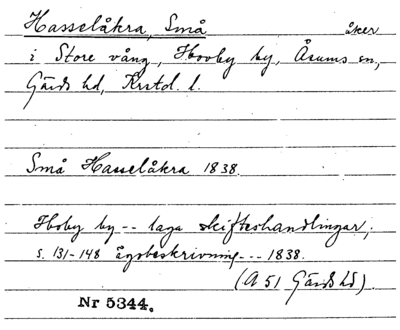 Hasselåkra, Små åker
i Store vång, Hovby by, Åsums sn,
Gärds hd, Krstd. l.
Små Hasselåkra 1838.
Hoby by -- laga skifteshandlingar,
s. 131-148 ägobeskrivning --- 1838.
(A 51 Gärds hd).
Nr 5344.